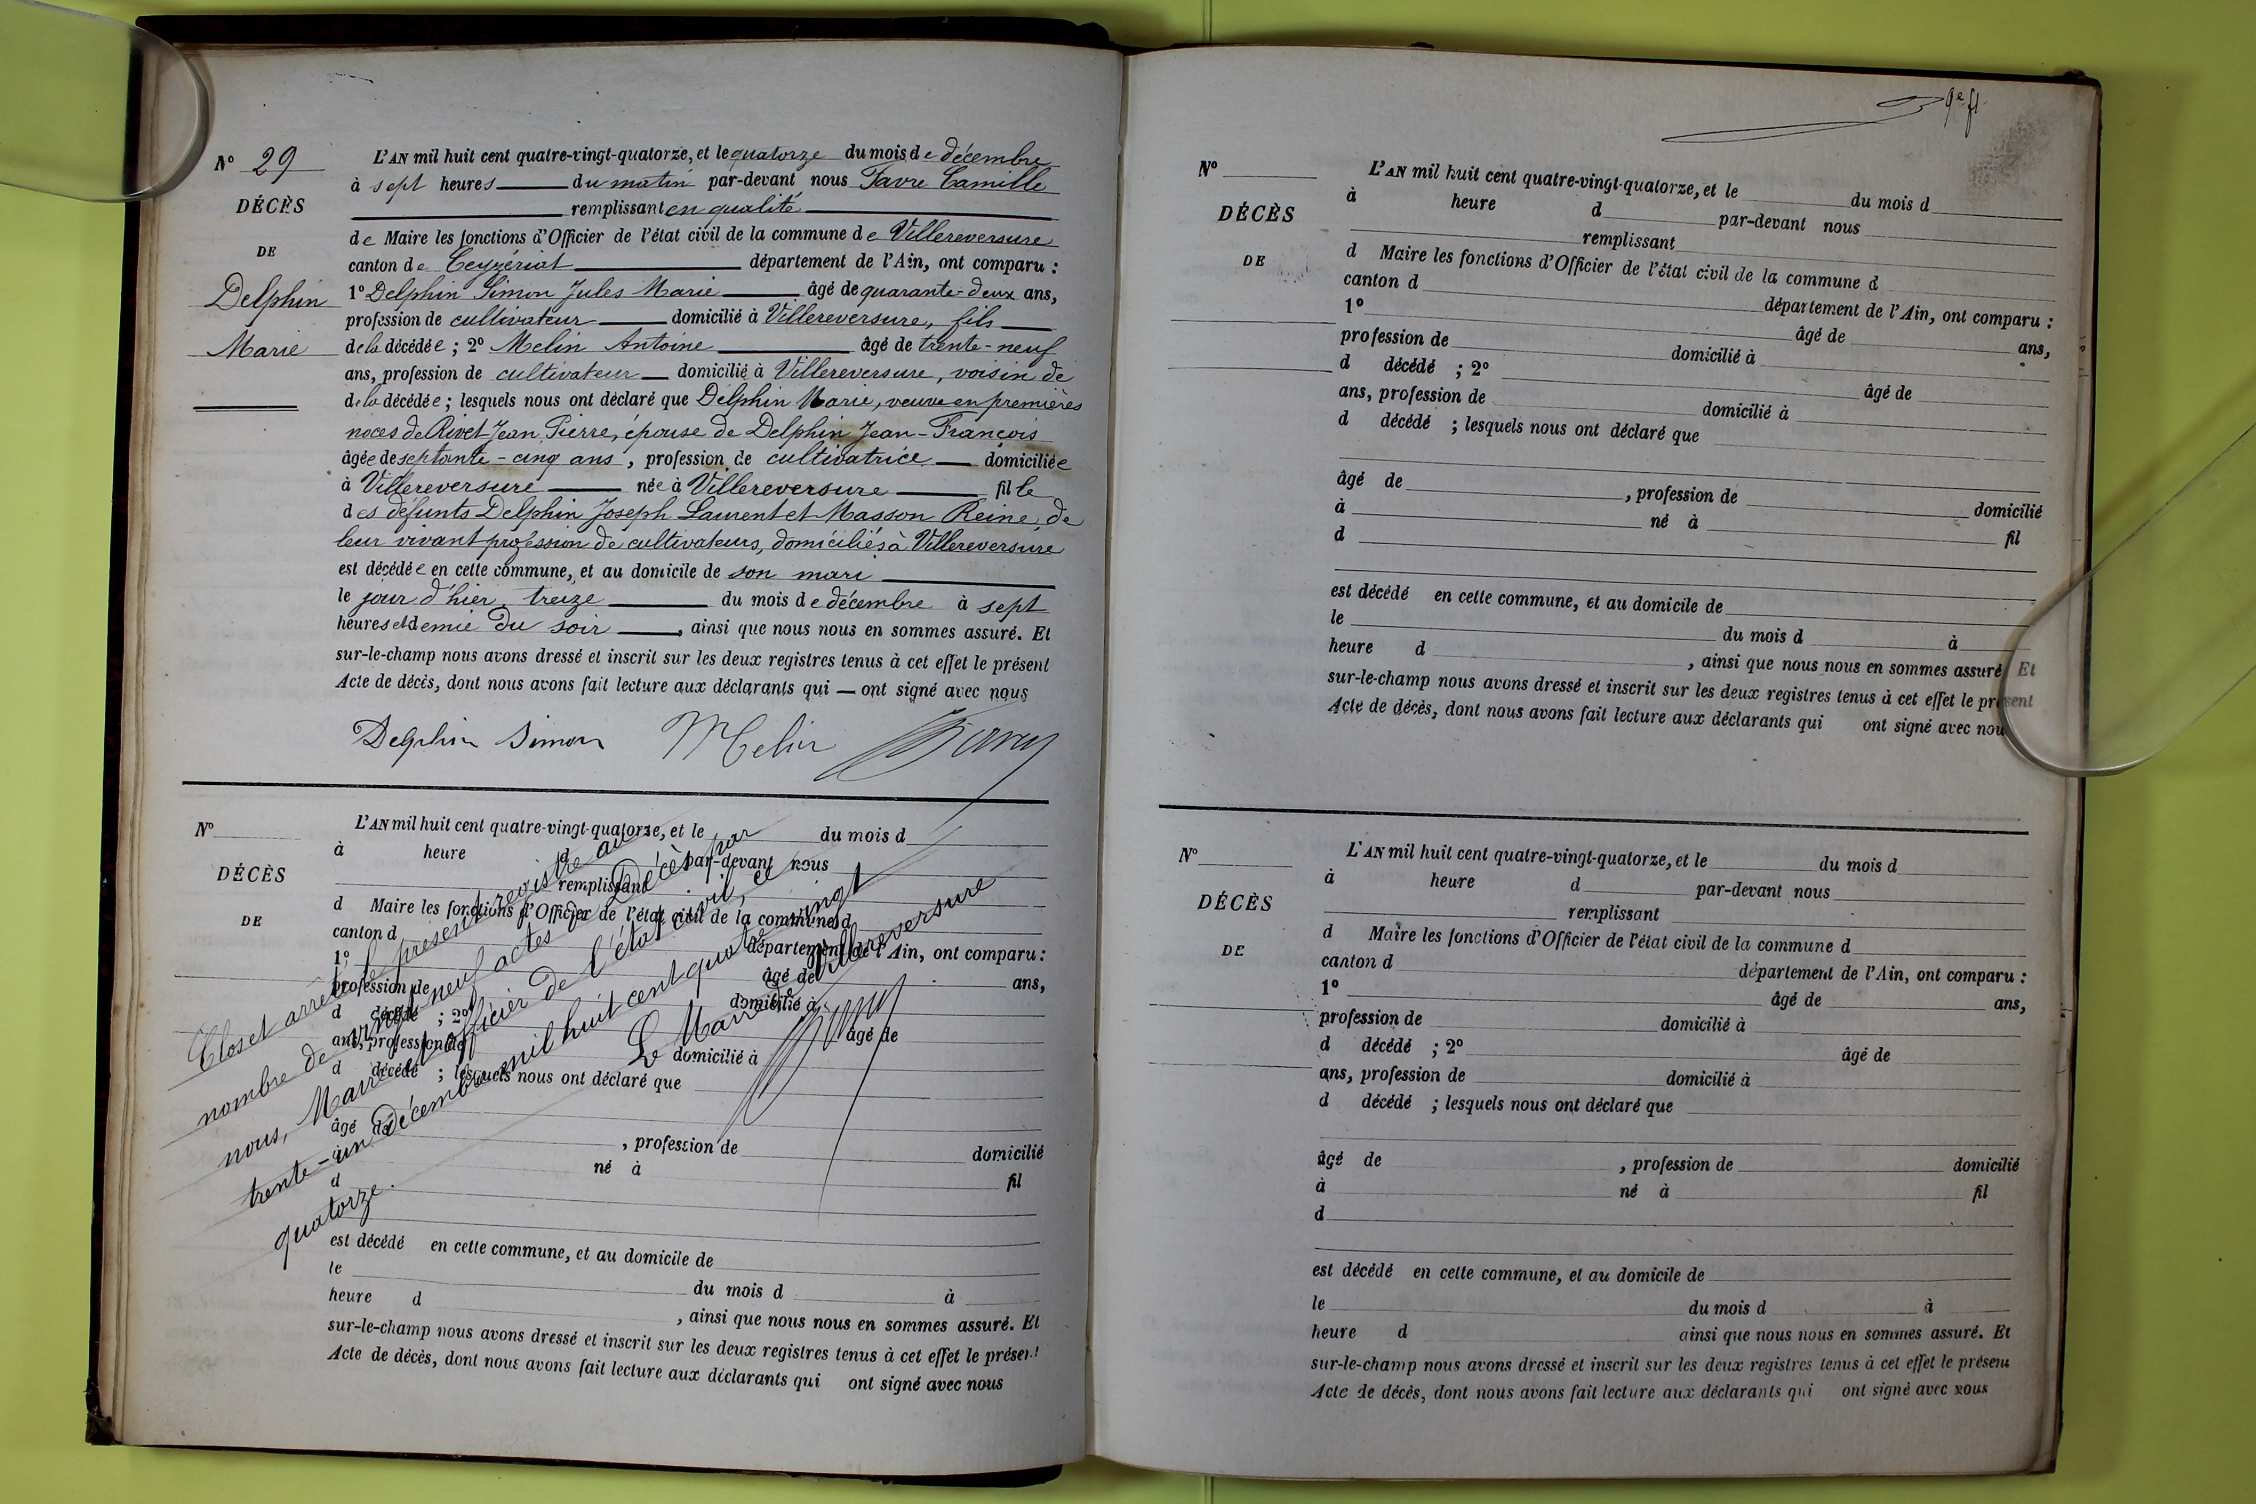 N° 29
DÉCÈS
DE
Delphin
Marie
L'AN mil huit cent quatre-vingt-quatorze, et le quatorze du mois de décembre
à sept heures du matin par-devant nous Favre Camille
remplissant en qualité
de Maire les fonctions d'Officier de l'état civil de la commune de Villereversure
canton de Ceyzériat département de l'Ain, ont comparu :
1° Delphin Simon Jules Marie âgé de quarante-deux ans,
profession de cultivateur domicilié à Villereversure, fils
de la décédée ; 2° Melin Antoine âgé de trente-neuf
ans, profession de cultivateur domicilié à Villereversure, voisin de
de la décédée ; lesquels nous ont déclaré que Delphin Marie, veuve en premières
noces de Rivet Jean Pierre, épouse de Delphin Jean-François
âgée de septante-cinq ans, profession de cultivatrice domiciliée
à Villereversure née à Villereversure fille
des défunts Delphin Joseph Laurent et Masson Reine, de
leur vivant profession de cultivateurs, domiciliés à Villereversure
est décédée en cette commune, et au domicile de son mari
le jour d'hier, treize du mois de décembre à sept
heures et demie du soir, ainsi que nous nous en sommes assuré. Et
sur-le-champ nous avons dressé et inscrit sur les deux registres tenus à cet effet le présent
Acte de décès, dont nous avons fait lecture aux déclarants qui — ont signé avec nous
Delphin Simon Melin Favre
N°
DÉCÈS
DE
L'AN mil huit cent quatre-vingt-quatorze, et le du mois d
à heure d par-devant nous
remplissant
d Maire les fonctions d'Officier de l'état civil de la commune d
canton d département de l'Ain, ont comparu :
1° âgé de ans,
profession de domicilié à
d décédé ; 2° âgé de
ans, profession de domicilié à
d décédé ; lesquels nous ont déclaré que
âgé de , profession de domicilié
à né à fil
d
est décédé en cette commune, et au domicile de
le du mois d à
heure d , ainsi que nous nous en sommes assuré. Et
sur-le-champ nous avons dressé et inscrit sur les deux registres tenus à cet effet le présent
Acte de décès, dont nous avons fait lecture aux déclarants qui ont signé avec nous
Clos et arrêté le présent registre au
nombre de vingt-neuf actes de Décès par
nous, Maire et officier de l'état civil, ce
trente-un décembre mil huit cent quatre vingt
quatorze.
Le Maire de Villereversure
Favre
9e ft
N°
DÉCÈS
DE
L'AN mil huit cent quatre-vingt-quatorze, et le du mois d
à heure d par-devant nous
remplissant
d Maire les fonctions d'Officier de l'état civil de la commune d
canton d département de l'Ain, ont comparu :
1° âgé de ans,
profession de domicilié à
d décédé ; 2° âgé de
ans, profession de domicilié à
d décédé ; lesquels nous ont déclaré que
âgé de , profession de domicilié
à né à fil
d
est décédé en cette commune, et au domicile de
le du mois d à
heure d , ainsi que nous nous en sommes assuré. Et
sur-le-champ nous avons dressé et inscrit sur les deux registres tenus à cet effet le présent
Acte de décès, dont nous avons fait lecture aux déclarants qui ont signé avec nou
N°
DÉCÈS
DE
L'AN mil huit cent quatre-vingt-quatorze, et le du mois d
à heure d par-devant nous
remplissant
d Maire les fonctions d'Officier de l'état civil de la commune d
canton d département de l'Ain, ont comparu :
1° âgé de ans,
profession de domicilié à
d décédé ; 2° âgé de
ans, profession de domicilié à
d décédé ; lesquels nous ont déclaré que
âgé de , profession de domicilié
à né à fil
d
est décédé en cette commune, et au domicile de
le du mois d à
heure d ainsi que nous nous en sommes assuré. Et
sur-le-champ nous avons dressé et inscrit sur les deux registres tenus à cet effet le présent
Acte de décès, dont nous avons fait lecture aux déclarants qui ont signé avec nous